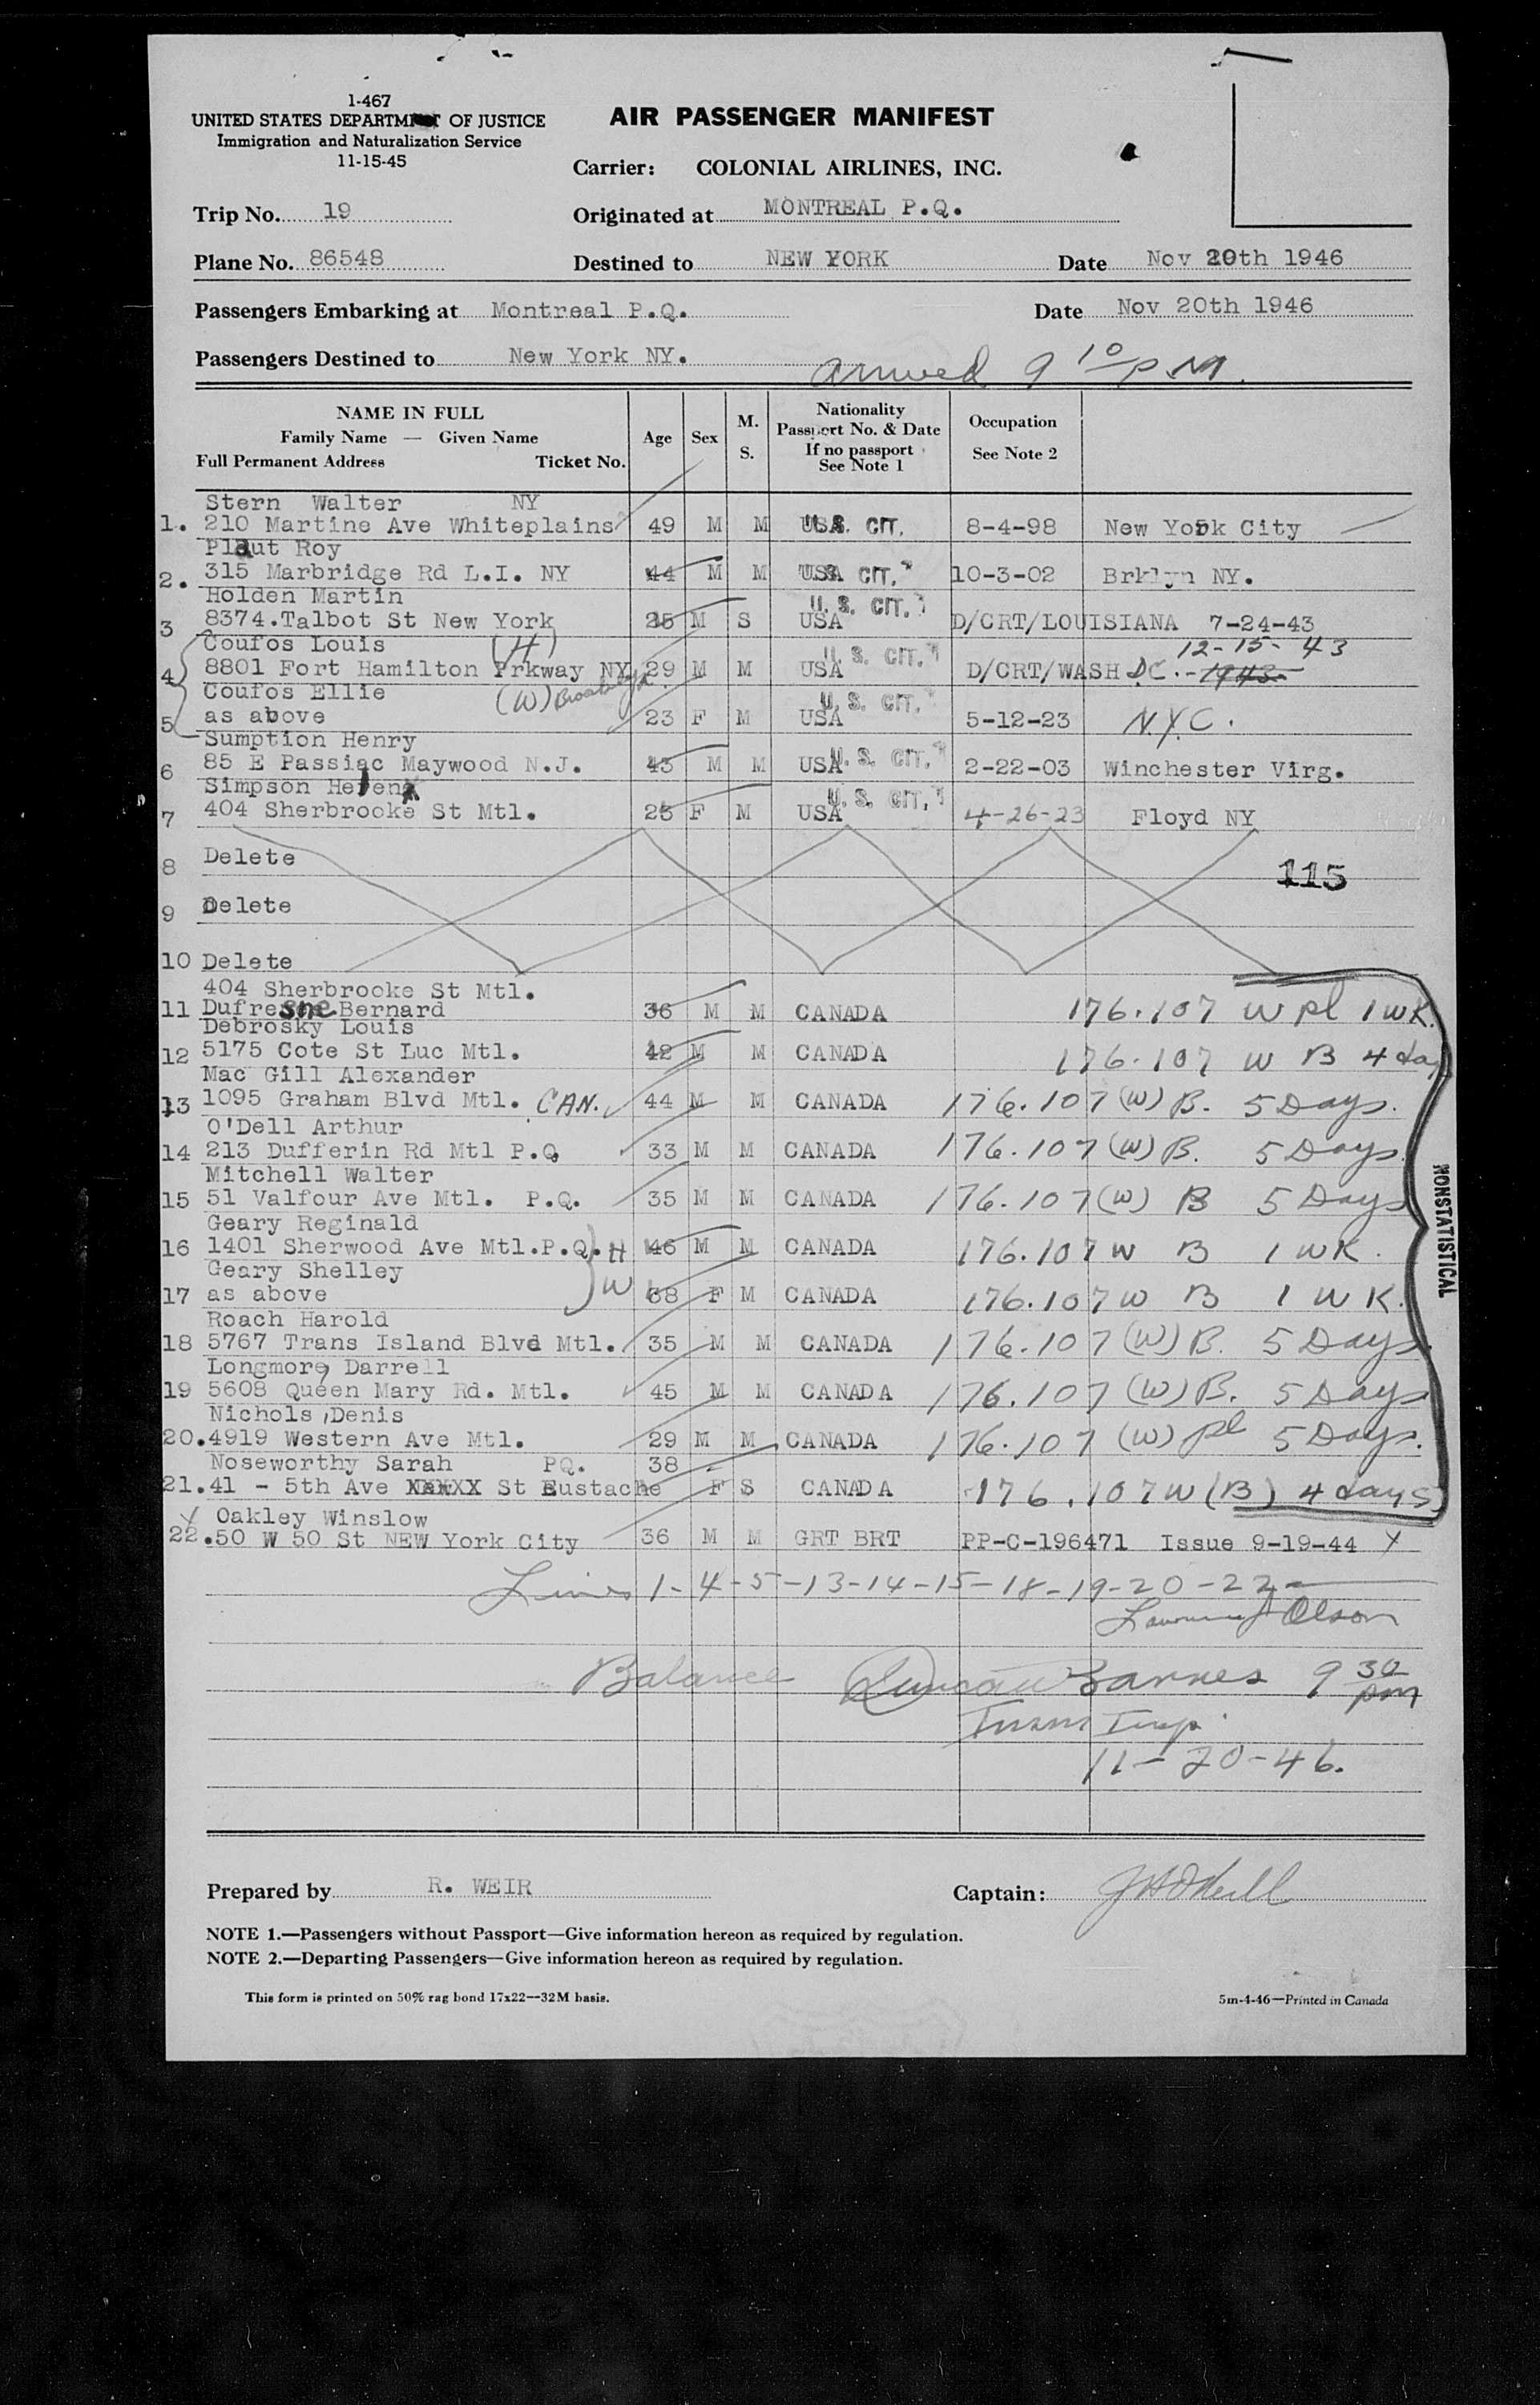 1-467
UNITED STATES DEPARTMENT OF JUSTICE
Immigration and Naturalization Service
11-15-45
AIR PASSENGER MANIFEST
Carrier: COLONIAL AIRLINES, INC.
Trip No. 19 Originated at MONTREAL P.Q.
Plane No. 86548 Destined to NEW YORK Date Nov 20th 1946
Passengers Embarking at Montreal P.Q. Date Nov 20th 1946
Passengers Destined to New York NY. arrived 9 10 P.M.
NAME IN FULL
Family Name — Given Name
Full Permanent Address Ticket No.
Age Sex M. S.
Nationality
Passport No. & Date
If no passport
See Note 1
Occupation
See Note 2
Stern Walter NY
1. 210 Martine Ave Whiteplains 49 M M USA U.S. CIT. 8-4-98 New York City
Plaut Roy
2. 315 Marbridge Rd L.I. NY 44 M M USA U.S. CIT. 10-3-02 Brklyn NY.
Holden Martin
3 8374.Talbot St New York 25 M S USA U. S. CIT. D/CRT/LOUISIANA 7-24-43
Coufos Louis (H) 12-15-43
4 8801 Fort Hamilton Prkway NY 29 M M USA U. S. CIT. D/CRT/WASH DC. -1943-
Coufos Ellie (W)
5 as above 23 F M USA U. S. CIT. 5-12-23 N.Y.C.
Sumption Henry
6 85 E Passiac Maywood N.J. 43 M M USA U. S. CIT. 2-22-03 Winchester Virg.
Simpson Helen
7 404 Sherbrooke St Mtl. 23 F M USA U. S. CIT. 4-26-23 Floyd NY
8 Delete
115
9 Delete
10 Delete
404 Sherbrooke St Mtl.
11 Dufresne Bernard 36 M M CANADA 176.107 W Pl 1 WK.
Debrosky Louis
12 5175 Cote St Luc Mtl. 42 M M CANADA 176.107 W B 4 day
Mac Gill Alexander
13 1095 Graham Blvd Mtl. CAN. 44 M M CANADA 176.107 (W) B. 5 Days.
O'Dell Arthur
14 213 Dufferin Rd Mtl P.Q 33 M M CANADA 176.107 (W) B. 5 Days.
Mitchell Walter
15 51 Valfour Ave Mtl. P.Q. 35 M M CANADA 176.107 (W) B 5 Days
Geary Reginald
16 1401 Sherwood Ave Mtl.P.Q. H 46 M M CANADA 176.107 W B 1 WK.
Geary Shelley
17 as above W 38 F M CANADA 176.107 W B 1 WK.
Roach Harold
18 5767 Trans Island Blvd Mtl. 35 M M CANADA 176.107 (W) B. 5 Days
Longmore, Darrell
19 5608 Queen Mary Rd. Mtl. 45 M M CANADA 176.107 (W) B. 5 Days
Nichols, Denis
20. 4919 Western Ave Mtl. 29 M M CANADA 176.107 (W) Pl 5 Days.
Noseworthy Sarah PQ. 38
21. 41 - 5th Ave XXXXX St Eustache F S CANADA 176.107 W (B) 4 days
NONSTATISTICAL
Oakley Winslow
22. 50 W 50 St NEW York City 36 M M GRT BRT PP-C-196471 Issue 9-19-44
Lines 1-4-5-13-14-15-18-19-20-22
Olson
Balance Duncan Barnes 9 30 pm
Imm Insp.
11-20-46.
Prepared by R. WEIR Captain: J H O'Neill
NOTE 1.—Passengers without Passport—Give information hereon as required by regulation.
NOTE 2.—Departing Passengers—Give information hereon as required by regulation.
This form is printed on 50% rag bond 17x22—32M basis. 5m-4-46—Printed in Canada